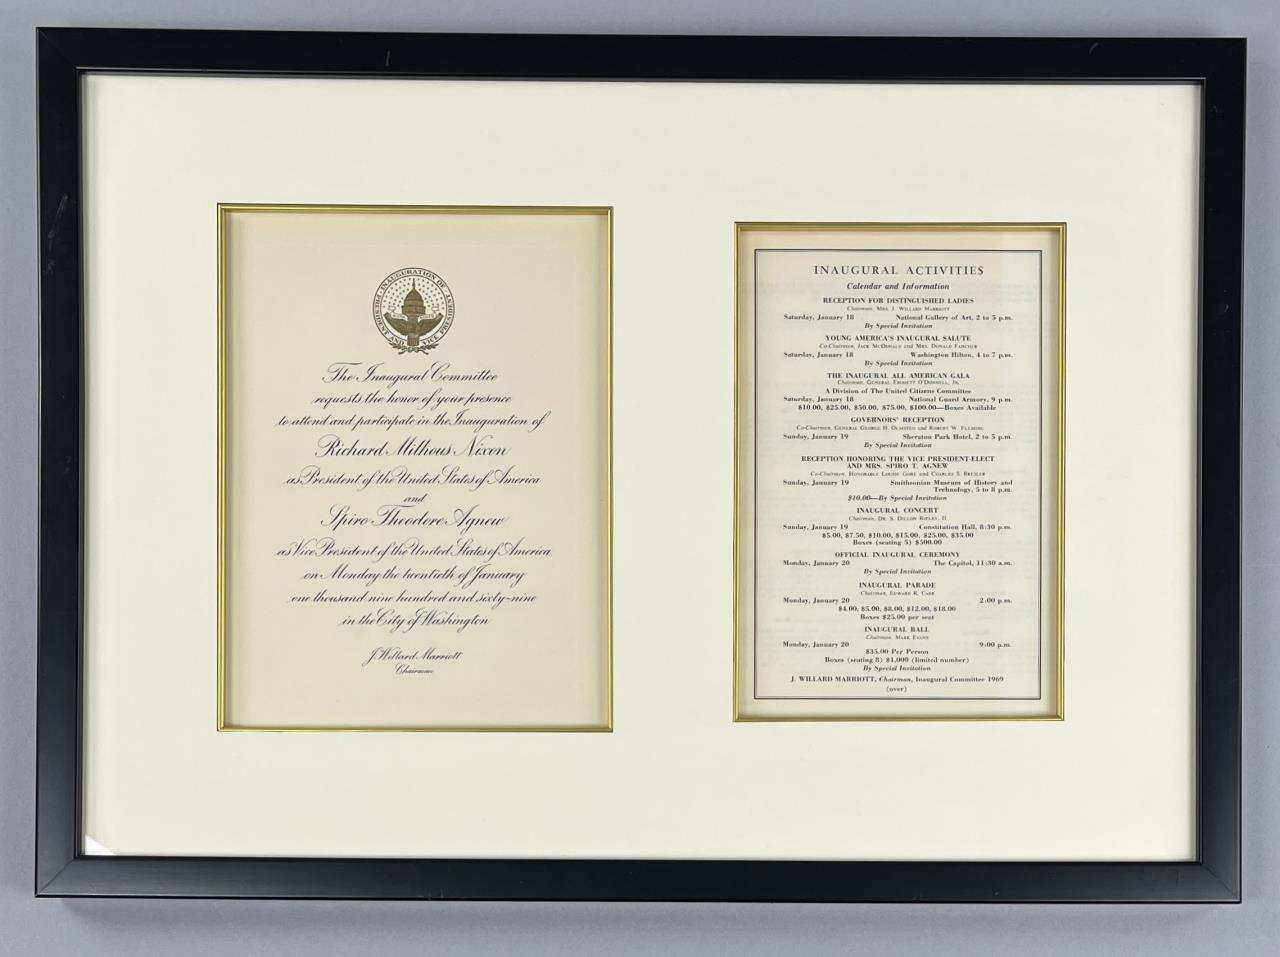 INAUGURATION OF
PRESIDENT AND VICE PRESIDENT
The Inaugural Committee
requests the honor of your presence
to attend and participate in the Inauguration of
Richard Milhous Nixon
as President of the United States of America
and
Spiro Theodore Agnew
as Vice President of the United States of America
on Monday the twentieth of January
one thousand nine hundred and sixty-nine
in the City of Washington
J. Willard Marriott
Chairman
INAUGURAL ACTIVITIES
Calendar and Information
RECEPTION FOR DISTINGUISHED LADIES
Chairman, MRS. J. WILLARD MARRIOTT
Saturday, January 18 National Gallery of Art, 2 to 5 p.m.
By Special Invitation
YOUNG AMERICA'S INAUGURAL SALUTE
Co-Chairman, JACK MCDONALD and MRS. DONALD FANCHER
Saturday, January 18 Washington Hilton, 4 to 7 p.m.
By Special Invitation
THE INAUGURAL ALL AMERICAN GALA
Chairman, GENERAL EMMETT O'DONNELL, JR.
A Division of The United Citizens Committee
Saturday, January 18 National Guard Armory, 9 p.m.
$10.00, $25.00, $50.00, $75.00, $100.00—Boxes Available
GOVERNORS' RECEPTION
Co-Chairman, GENERAL GEORGE H. OLMSTED and ROBERT W. FLEMING
Sunday, January 19 Sheraton Park Hotel, 2 to 5 p.m.
By Special Invitation
RECEPTION HONORING THE VICE PRESIDENT-ELECT
AND MRS. SPIRO T. AGNEW
Co-Chairman, HONORABLE LOUISE GORE and CHARLES S. BRESLER
Sunday, January 19 Smithsonian Museum of History and
Technology, 5 to 8 p.m.
$10.00—By Special Invitation
INAUGURAL CONCERT
Chairman, DR. S. DILLON RIPLEY, II
Sunday, January 19 Constitution Hall, 8:30 p.m.
$5.00, $7.50, $10.00, $15.00, $25.00, $35.00
Boxes (seating 5) $500.00
OFFICIAL INAUGURAL CEREMONY
Monday, January 20 The Capitol, 11:30 a.m.
By Special Invitation
INAUGURAL PARADE
Chairman, EDWARD R. CARR
Monday, January 20 2:00 p.m.
$4.00, $5.00, $8.00, $12.00, $18.00
Boxes $25.00 per seat
INAUGURAL BALL
Chairman, MARK EVANS
Monday, January 20 9:00 p.m.
$35.00 Per Person
Boxes (seating 8) $1,000 (limited number)
By Special Invitation
J. WILLARD MARRIOTT, Chairman, Inaugural Committee 1969
(over)